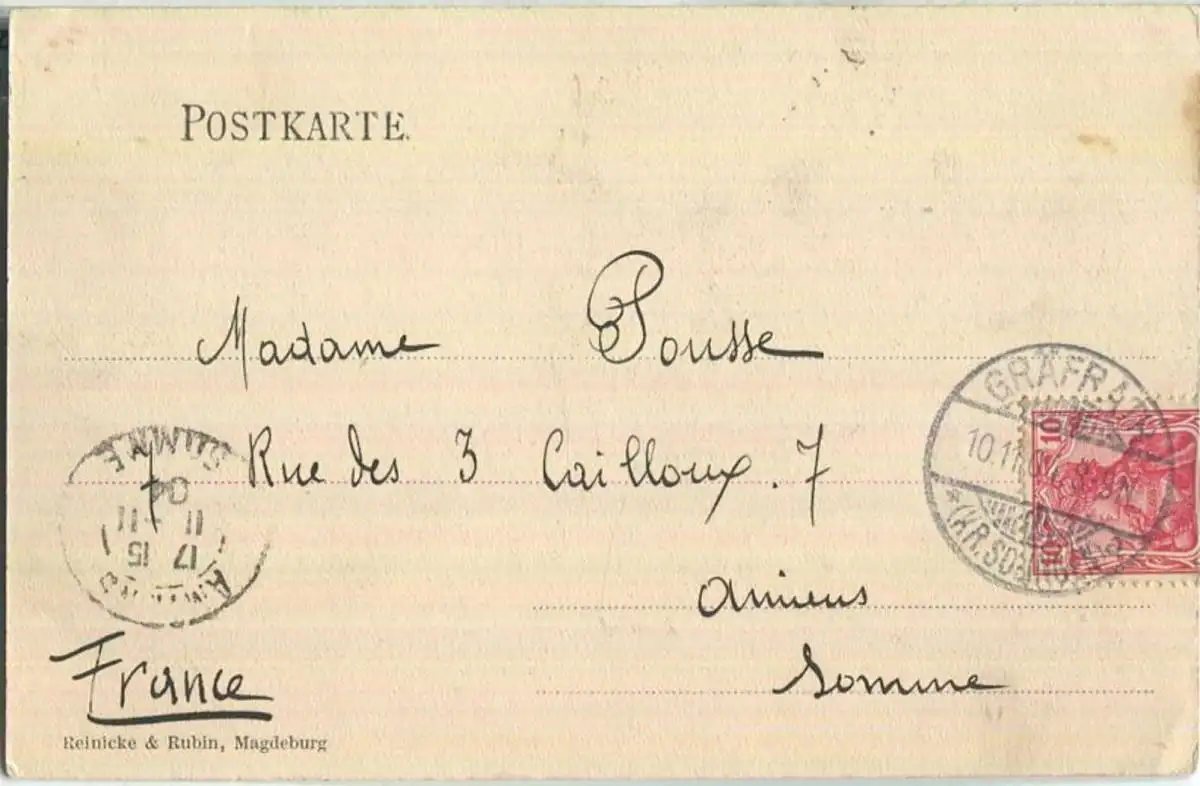 POSTKARTE.
Madame Pousse
GRÄFRATH
10.11.04. 8-9N.
* (KR. SOLINGEN)
10
10
Rue des 3 Cailloux. 7
SOMME
04
11 - 11
17 15
AMIENS
Amiens
Somme
France
Reinicke & Rubin, Magdeburg